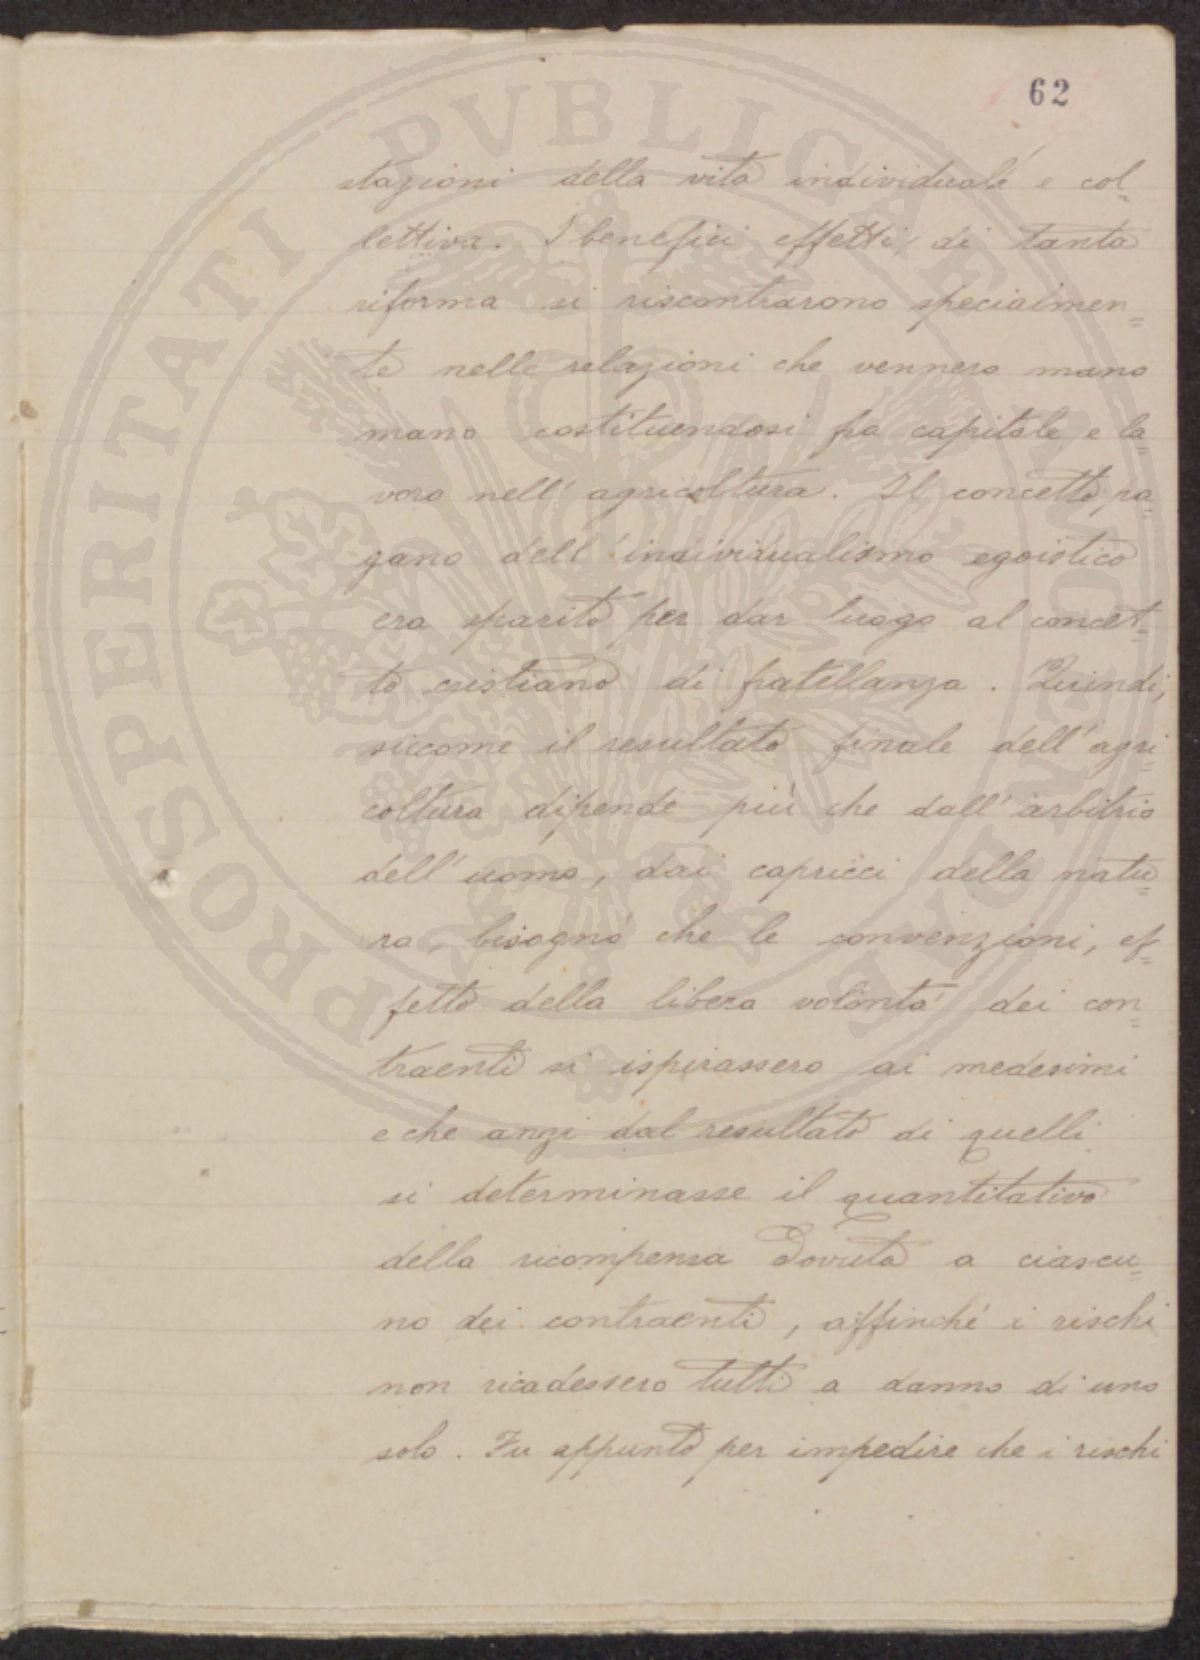 62
stazioni della vita individuale e col=
lettiva. I benefici effetti di tanta
riforma si riscontrarono specialmen=
te nelle relazioni che vennero mano
mano costituendosi fra capitale e la=
voro nell'agricoltura. Il concetto pa=
gano dell'individualismo egoistico
era sparito per dar luogo al concet=
to cristiano di fratellanza. Quindi,
siccome il resultato finale dell'agri=
coltura dipende più che dall'arbitrio
dell'uomo, dai capricci della natu=
ra, bisognò che le convenzioni, ef=
fetto della libera volontà dei con=
traenti si ispirassero ai medesimi
e che anzi dal resultato di quelli
si determinasse il quantitativo
della ricompensa dovuta a ciascu=
no dei contraenti, affinché i rischi
non ricadessero tutti a danno di uno
solo. Fu appunto per impedire che i rischi
PROSPERITATI PVBLICAE